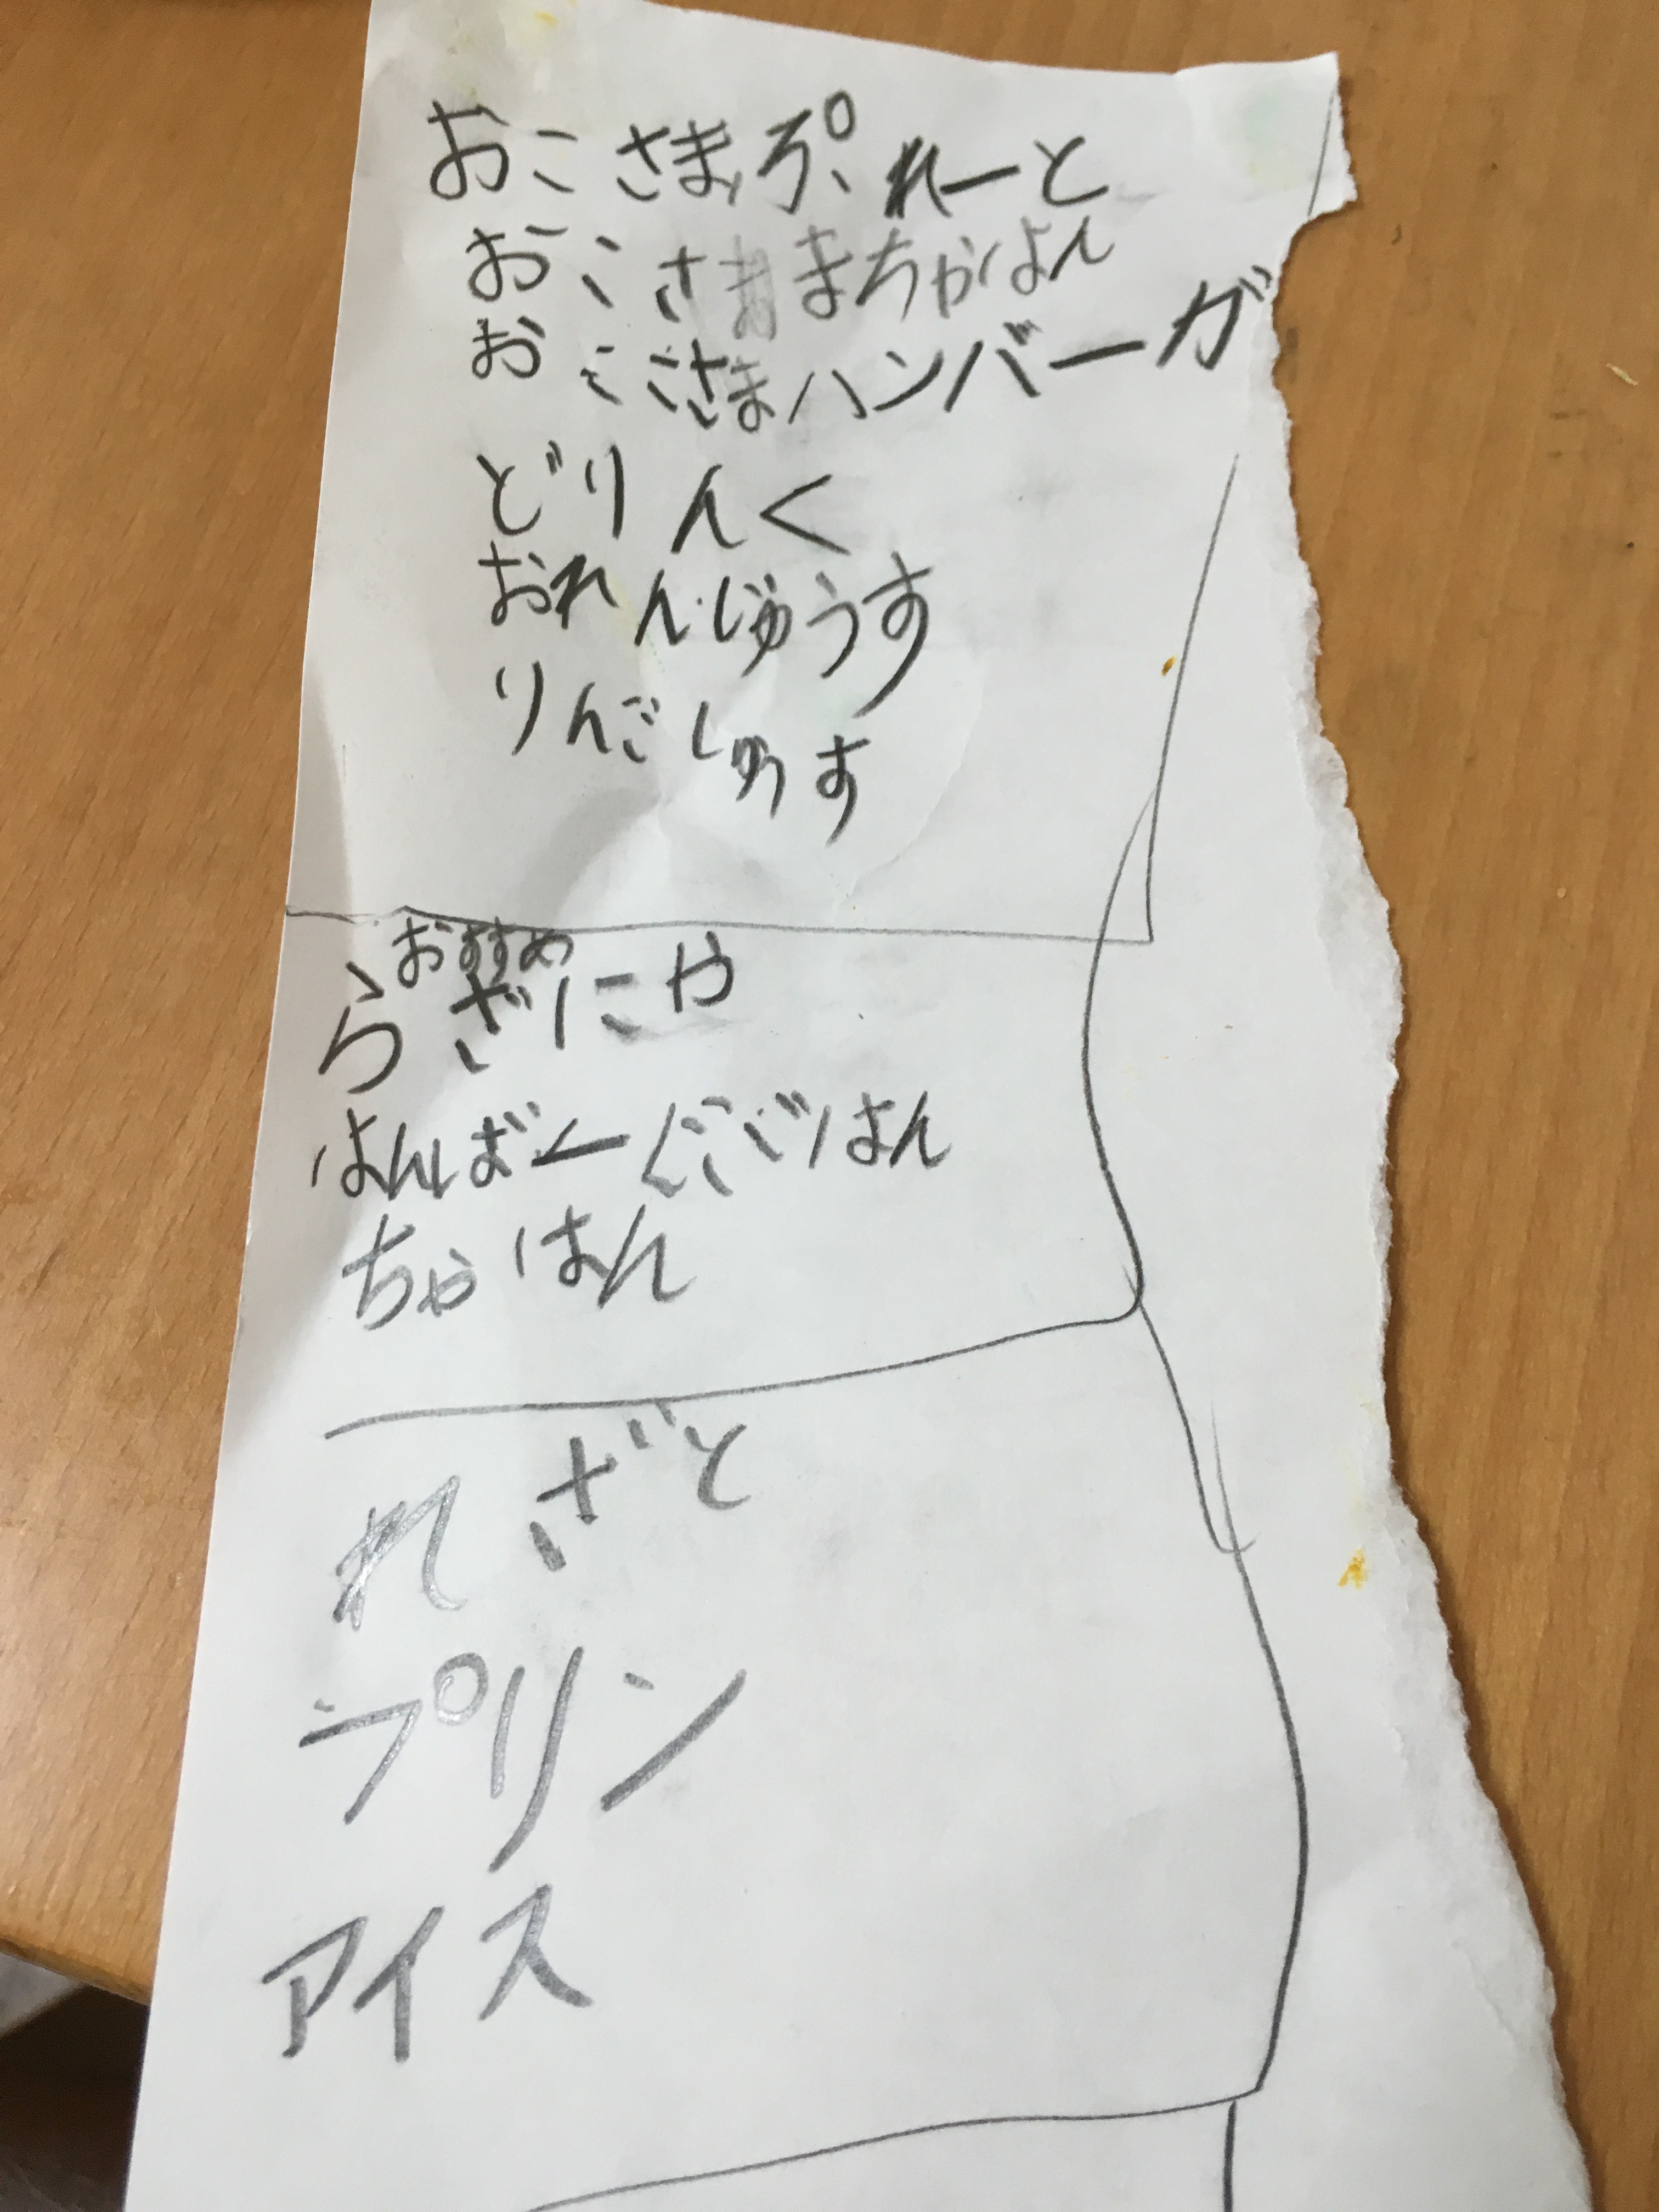 おこさまぷれーと
おこさままちゃはん
おこさまハンバーガ
どりんく
おれんじゅうす
りんごしゅうす
おすすめ
らざにや
はんばーぐごはん
ちゃはん
れざと
プリン
アイス